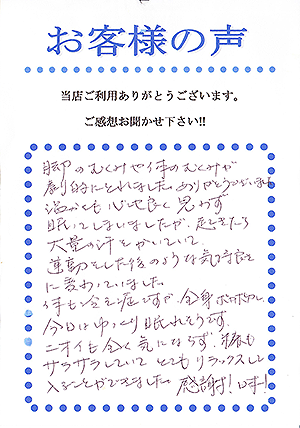 お客様の声
当店ご利用ありがとうございます。
ご感想お聞かせ下さい!!
脚のむくみや体のむくみが
劇的にとれました。ありがとうございます
温かくも心地良く思わず
眠ってしまいましたが、起きたら
大量の汗をかいていて
運動をした後のような気持良さ
に変わっていました。
体も冷え症ですが、全身ポカポカし
今日はゆっくり眠れそうです。
ニオイも全く気にならず、
サラサラしていてとてもリラックスして
入ることができました。感謝!します!